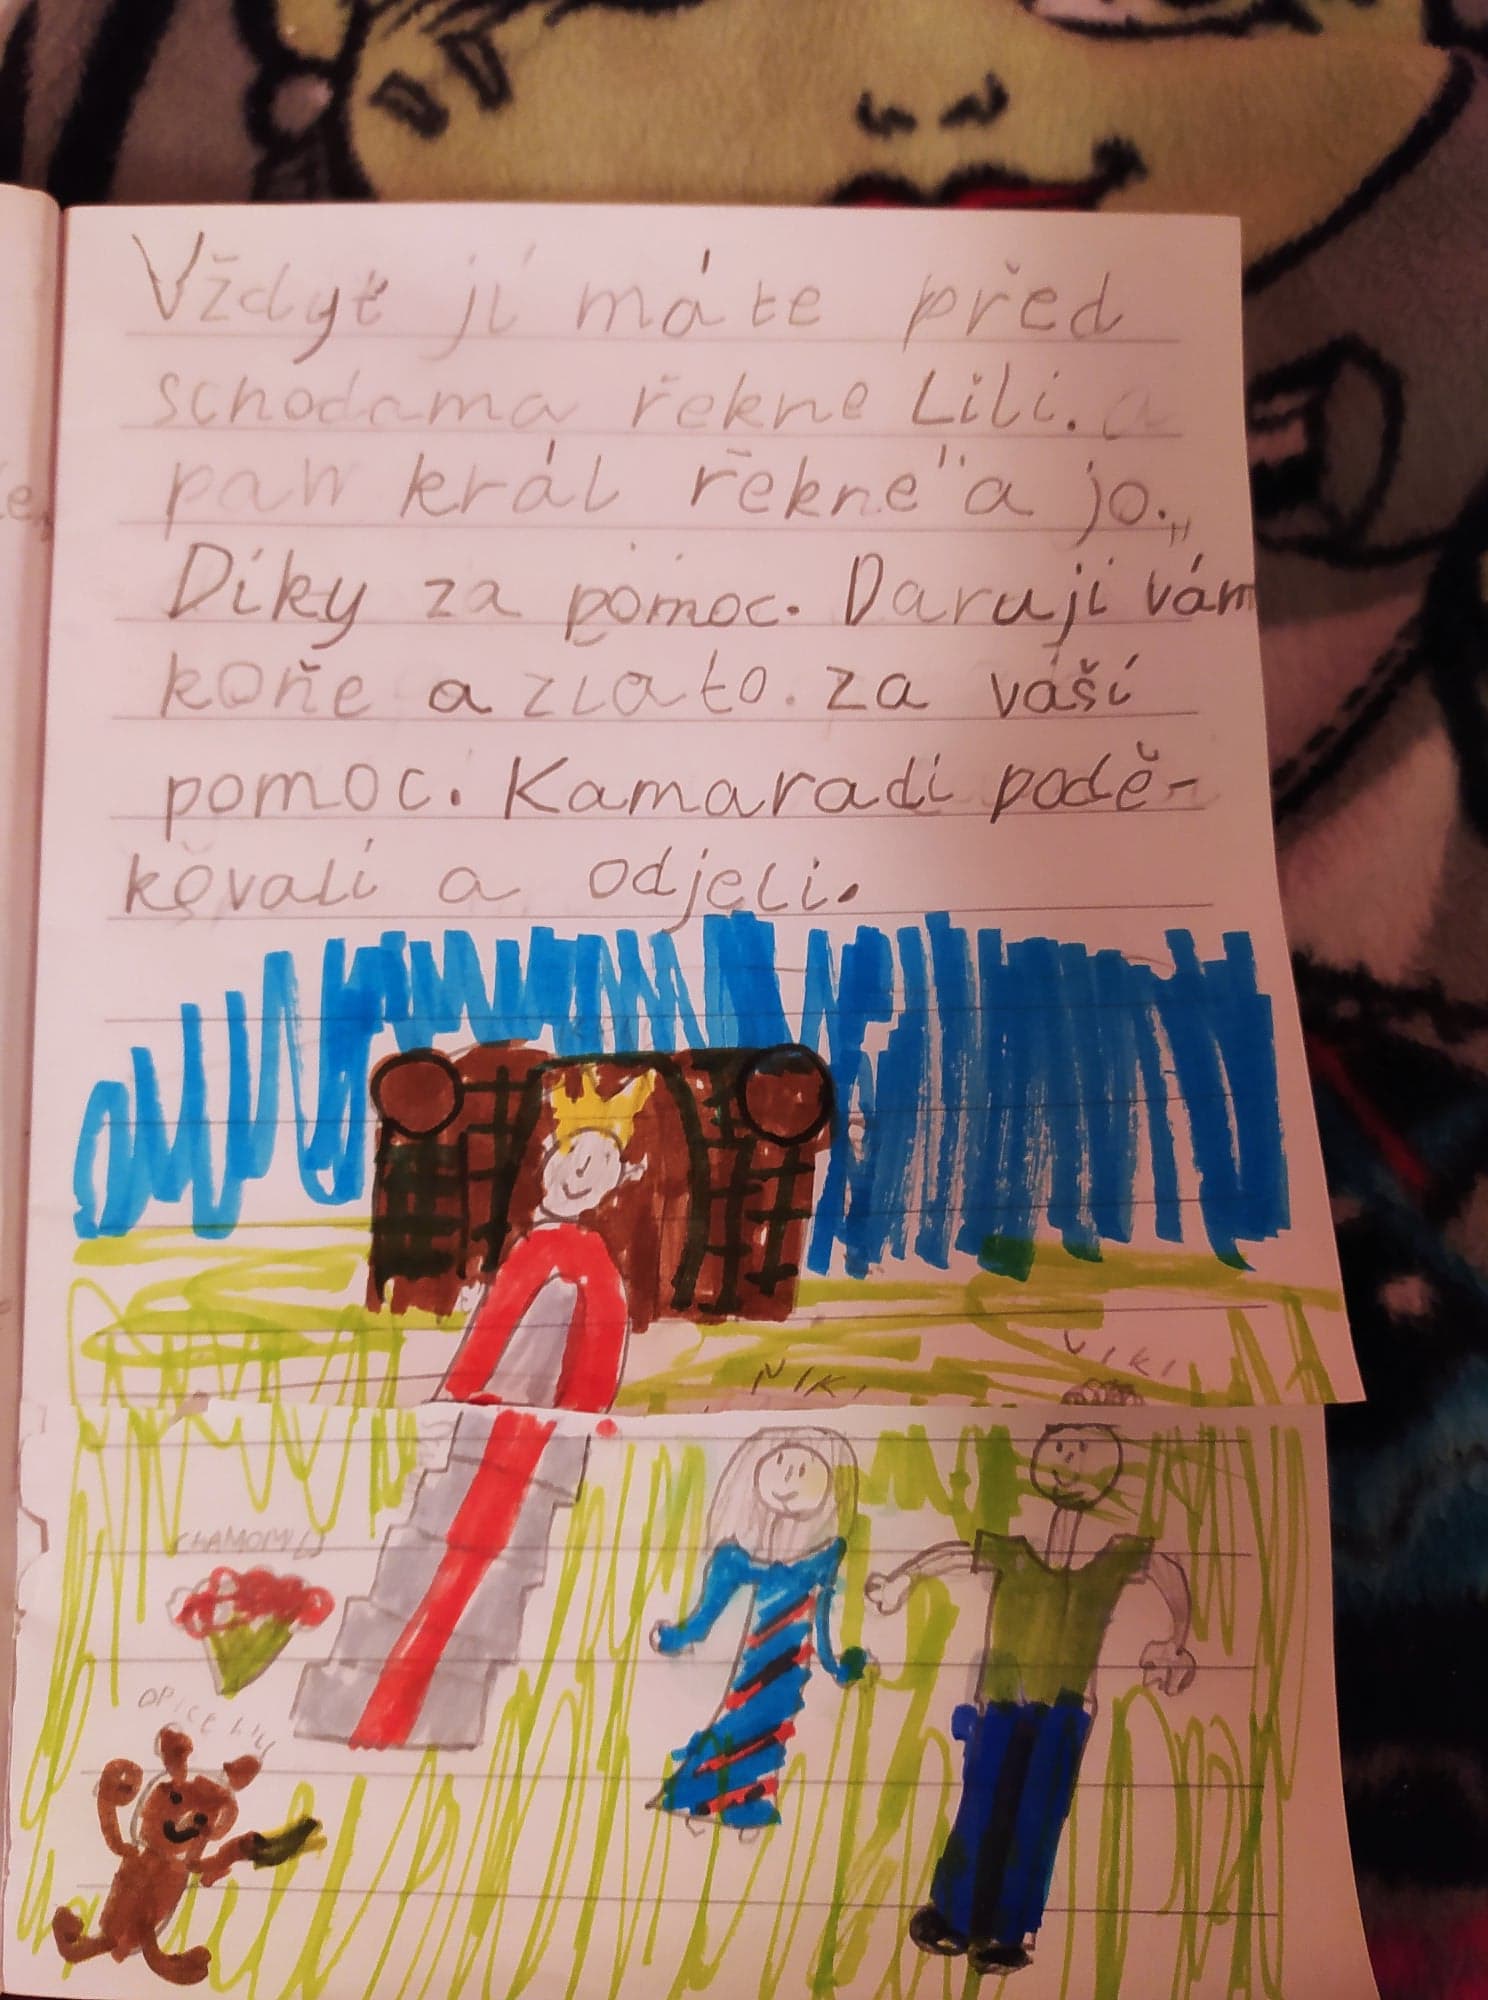 Vždyť jí máte před
schodama řekne Lili. a
pan král řekne "a jo."
Díky za pomoc. Daruji vám
koňe a zlato. za vaší
pomoc. Kamaradi podě-
kovali a odjeli.
NIKI
VIKI
OPICE LILI